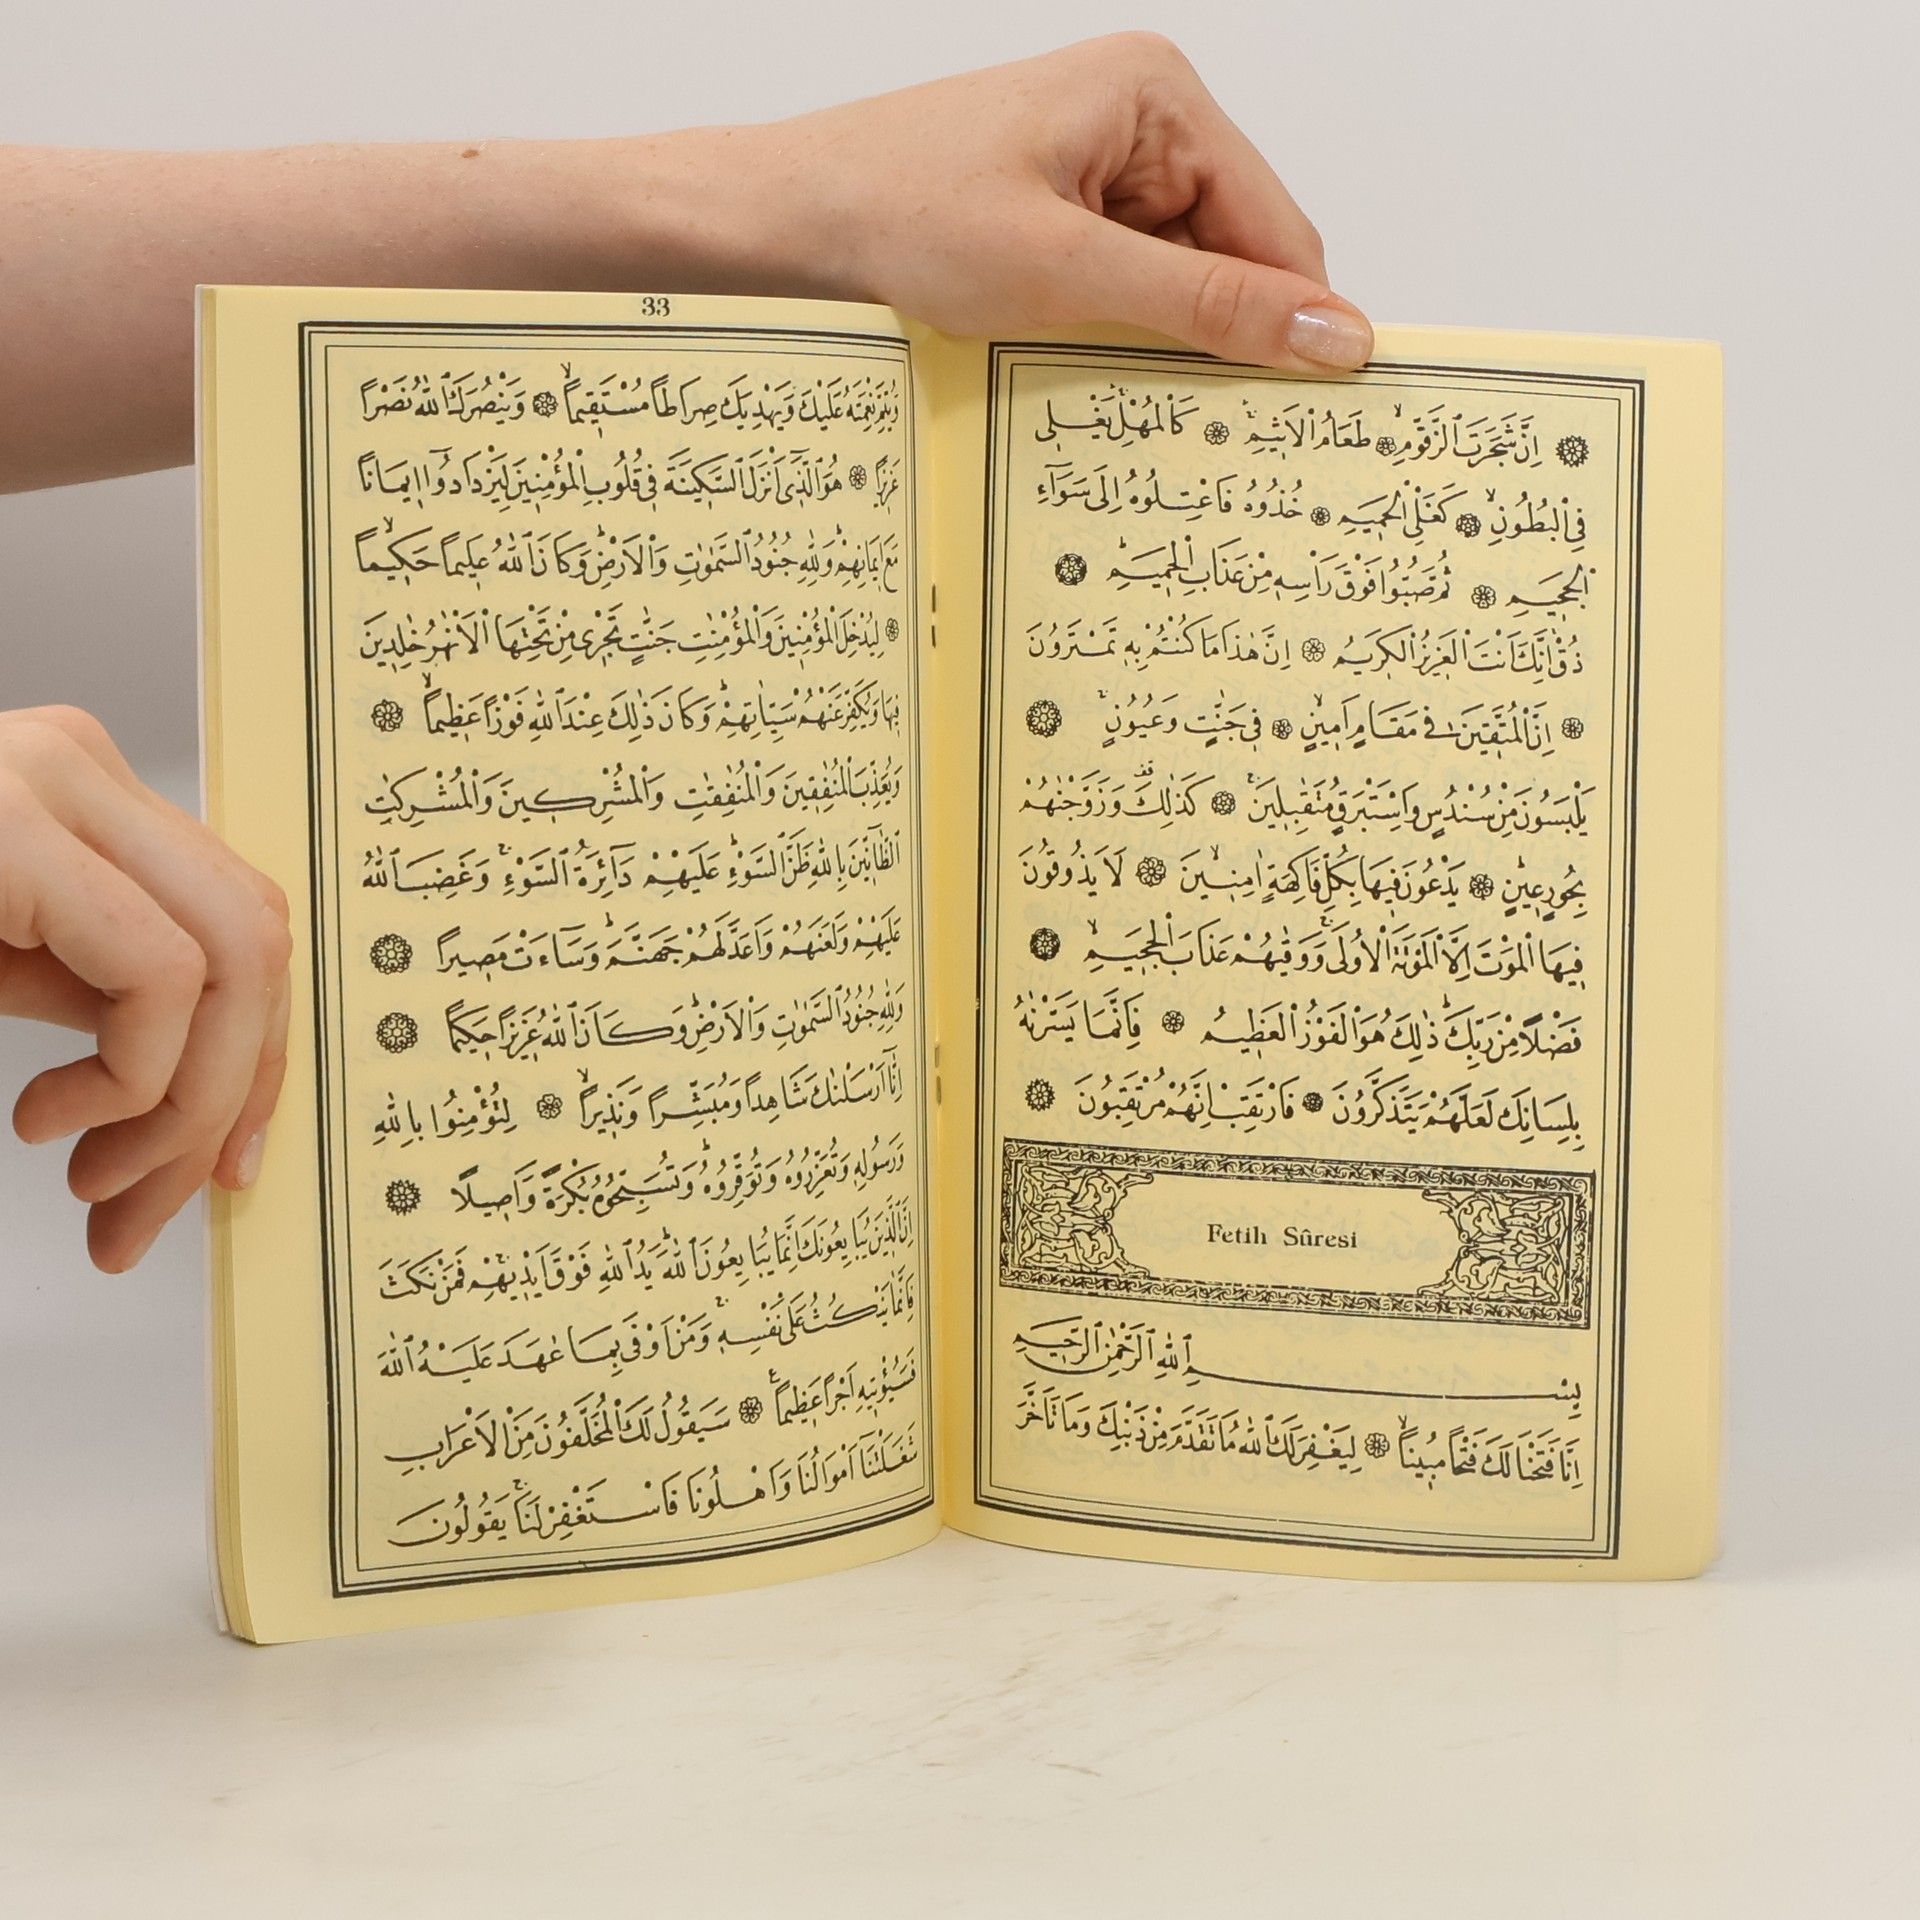 اِنَّ شَجَرَتَ الزَّقُّومِۙ طَعَامُ الْاَثٖيمِۚ كَالْمُهْلِۚ يَغْلٖى
فِى الْبُطُونِۙ كَغَلْىِ الْحَمٖيمِ خُذُوهُ فَاعْتِلُوهُ اِلٰى سَوَٓاءِ
الْجَحٖيمِ ثُمَّ صُبُّوا فَوْقَ رَاْسِهٖ مِنْ عَذَابِ الْحَمٖيمِؕ
ذُقْۙ اِنَّكَ اَنْتَ الْعَزٖيزُ الْكَرٖيمُ اِنَّ هٰذَا مَا كُنْتُمْ بِهٖ تَمْتَرُونَ
اِنَّ الْمُتَّقٖينَ فٖى مَقَامٍ اَمٖينٍۙ فٖى جَنَّاتٍ وَعُيُونٍۚ
يَلْبَسُونَ مِنْ سُنْدُسٍ وَاِسْتَبْرَقٍ مُتَقَابِلٖينَۚ كَذٰلِكَ وَزَوَّجْنَاهُمْ
بِحُورٍ عٖينٍؕ يَدْعُونَ فٖيهَا بِكُلِّ فَاكِهَةٍ اٰمِنٖينَۙ لَا يَذُوقُونَ
فٖيهَا الْمَوْتَ اِلَّا الْمَوْتَةَ الْاُولٰىۚ وَوَقٰيهُمْ عَذَابَ الْجَحٖيمِۙ
فَضْلًا مِنْ رَبِّكَؕ ذٰلِكَ هُوَ الْفَوْزُ الْعَظٖيمُ فَاِنَّمَا يَسَّرْنَاهُ
بِلِسَانِكَ لَعَلَّهُمْ يَتَذَكَّرُونَ فَارْتَقِبْ اِنَّهُمْ مُرْتَقِبُونَ
Fetih Sûresi
بِسْمِ اللّٰهِ الرَّحْمٰنِ الرَّحٖيمِ
اِنَّا فَتَحْنَا لَكَ فَتْحًا مُبٖينًاۙ لِيَغْفِرَ لَكَ اللّٰهُ مَا تَقَدَّمَ مِنْ ذَنْبِكَ وَمَا تَاَخَّرَ
33
وَيُتِمَّ نِعْمَتَهُ عَلَيْكَ وَيَهْدِيَكَ صِرَاطًا مُسْتَقٖيمًاۙ وَيَنْصُرَكَ اللّٰهُ نَصْرًا
عَزٖيزًا هُوَ الَّذٖٓى اَنْزَلَ السَّكٖينَةَ فٖى قُلُوبِ الْمُؤْمِنٖينَ لِيَزْدَادُٓوا اٖيمَانًا
مَعَ اٖيمَانِهِمْؕ وَلِلّٰهِ جُنُودُ السَّمٰوَاتِ وَالْاَرْضِؕ وَكَانَ اللّٰهُ عَلٖيمًا حَكٖيمًاۙ
لِيُدْخِلَ الْمُؤْمِنٖينَ وَالْمُؤْمِنَاتِ جَنَّاتٍ تَجْرٖى مِنْ تَحْتِهَا الْاَنْهَارُ خَالِدٖينَ
فٖيهَا وَيُكَفِّرَ عَنْهُمْ سَيِّاٰتِهِمْؕ وَكَانَ ذٰلِكَ عِنْدَ اللّٰهِ فَوْزًا عَظٖيمًاۙ
وَيُعَذِّبَ الْمُنَافِقٖينَ وَالْمُنَافِقَاتِ وَالْمُشْرِكٖينَ وَالْمُشْرِكَاتِ
الظَّٓانّٖينَ بِاللّٰهِ ظَنَّ السَّوْءِؕ عَلَيْهِمْ دَٓائِرَةُ السَّوْءِۚ وَغَضِبَ اللّٰهُ
عَلَيْهِمْ وَلَعَنَهُمْ وَاَعَدَّ لَهُمْ جَهَنَّمَؕ وَسَٓاءَتْ مَصٖيرًا
وَلِلّٰهِ جُنُودُ السَّمٰوَاتِ وَالْاَرْضِؕ وَكَانَ اللّٰهُ عَزٖيزًا حَكٖيمًا
اِنَّٓا اَرْسَلْنَاكَ شَاهِدًا وَمُبَشِّرًا وَنَذٖيرًاۙ لِتُؤْمِنُوا بِاللّٰهِ
وَرَسُولِهٖ وَتُعَزِّرُوهُ وَتُوَقِّرُوهُؕ وَتُسَبِّحُوهُ بُكْرَةً وَاَصٖيلًا
اِنَّ الَّذٖينَ يُبَايِعُونَكَ اِنَّمَا يُبَايِعُونَ اللّٰهَؕ يَدُ اللّٰهِ فَوْقَ اَيْدٖيهِمْۚ فَمَنْ نَكَثَ
فَاِنَّمَا يَنْكُثُ عَلٰى نَفْسِهٖۚ وَمَنْ اَوْفٰى بِمَا عَاهَدَ عَلَيْهُ اللّٰهَ
فَسَيُؤْتٖيهِ اَجْرًا عَظٖيمًاࣖ سَيَقُولُ لَكَ الْمُخَلَّفُونَ مِنَ الْاَعْرَابِ
شَغَلَتْنَٓا اَمْوَالُنَا وَاَهْلُونَا فَاسْتَغْفِرْ لَنَاۚ يَقُولُونَ